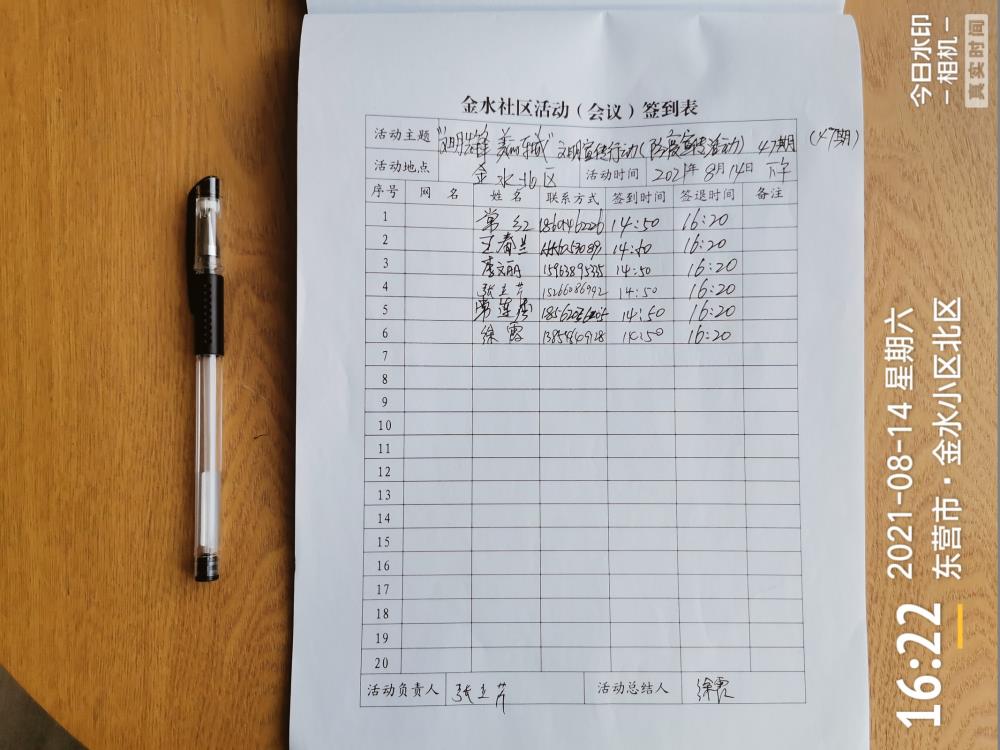 金水社区活动（会议）签到表
活动主题 "文明先锋 美丽东城" 文明宣传行动（防疫宣传活动）47期 （47期）
活动地点 金水北区 活动时间 2021年8月14日 下午
序号 网名 姓名 联系方式 签到时间 签退时间 备注
1 常红 14:50 16:20
2 王春兰 14:50 16:20
3 李文丽 15963895335 14:50 16:20
4 张立芹 15266086992 14:50 16:20
5 常莲 14:50 16:20
6 徐霞 14:50 16:20
7
8
9
10
11
12
13
14
15
16
17
18
19
20
活动负责人 张立芹 活动总结人 徐霞
今日水印
相机
真实时间
16:22
2021-08-14 星期六
东营市·金水小区北区